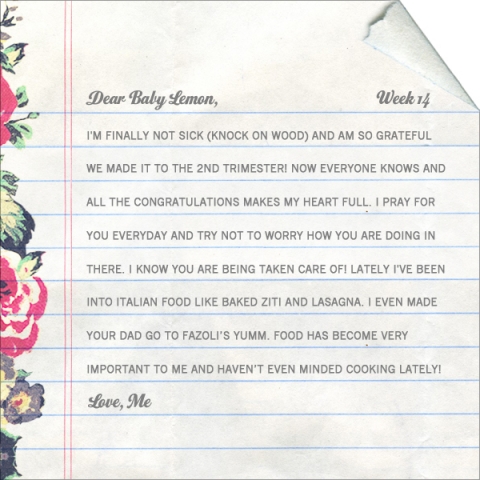 Dear Baby Lemon, Week 14
I'M FINALLY NOT SICK (KNOCK ON WOOD) AND AM SO GRATEFUL
WE MADE IT TO THE 2ND TRIMESTER! NOW EVERYONE KNOWS AND
ALL THE CONGRATULATIONS MAKES MY HEART FULL. I PRAY FOR
YOU EVERYDAY AND TRY NOT TO WORRY HOW YOU ARE DOING IN
THERE. I KNOW YOU ARE BEING TAKEN CARE OF! LATELY I'VE BEEN
INTO ITALIAN FOOD LIKE BAKED ZITI AND LASAGNA. I EVEN MADE
YOUR DAD GO TO FAZOLI'S YUMM. FOOD HAS BECOME VERY
IMPORTANT TO ME AND HAVEN'T EVEN MINDED COOKING LATELY!
Love, Me